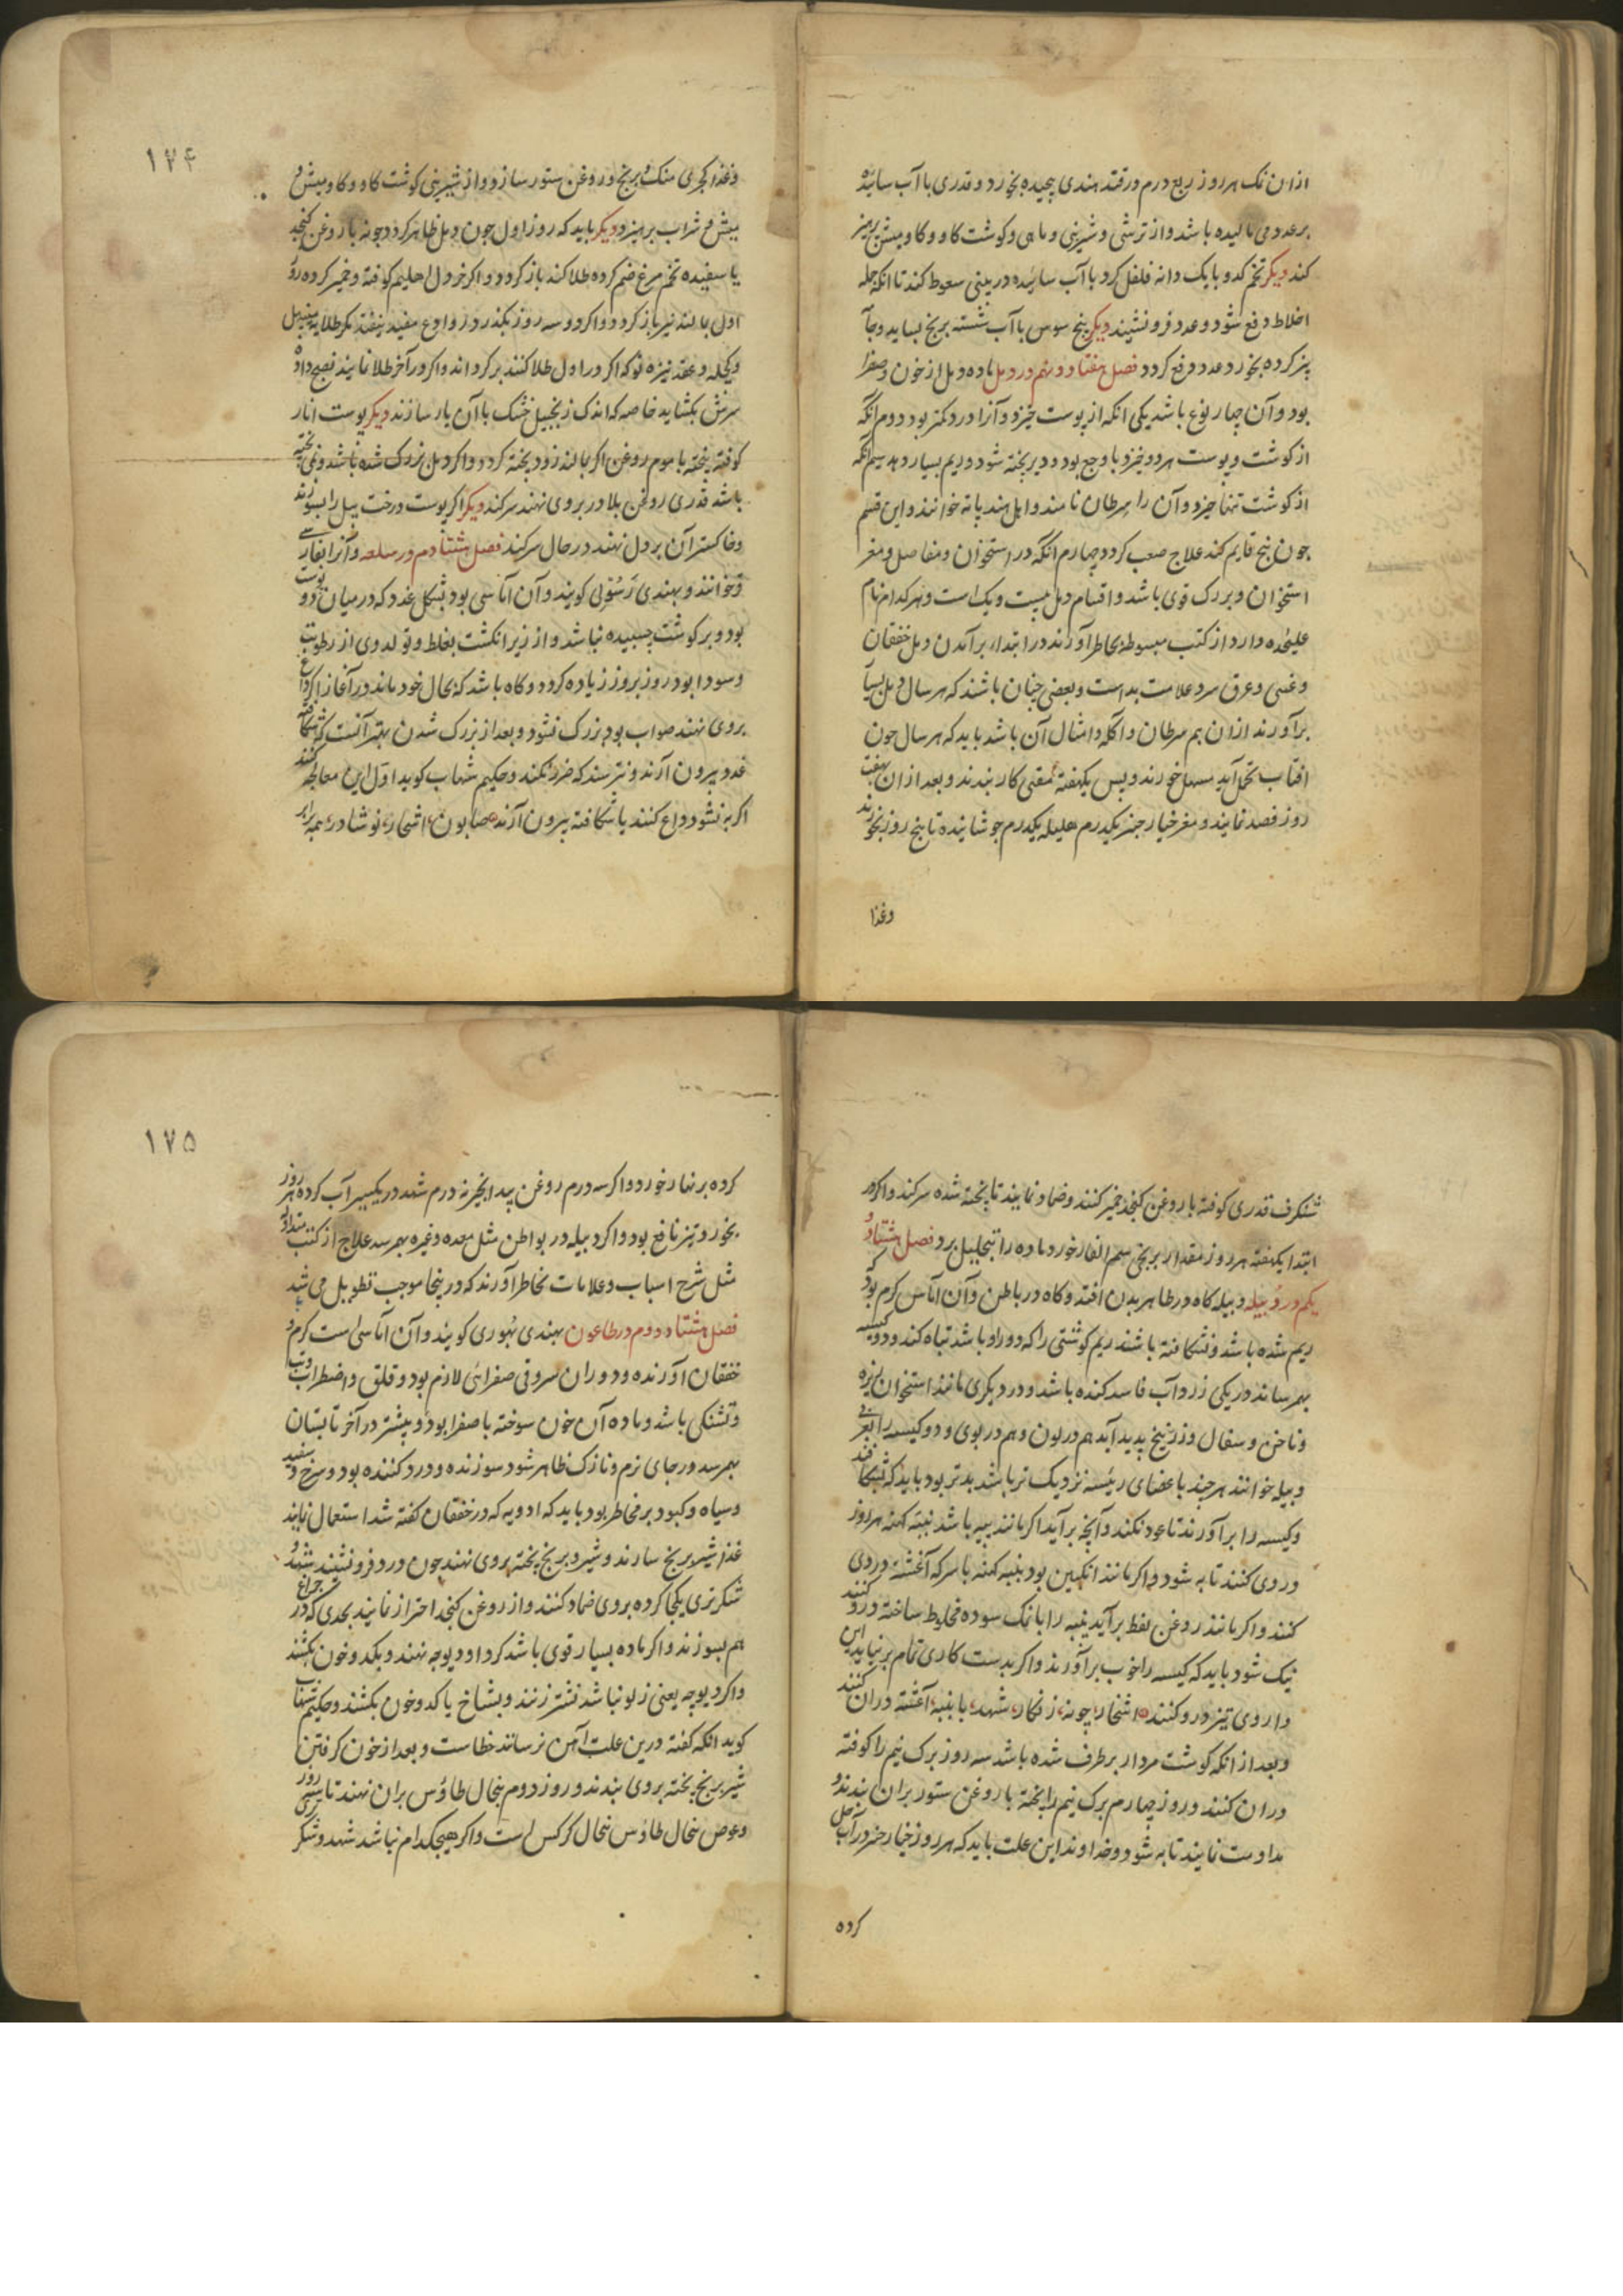 ازان نمک هر روز ربع درم در قند هندی پیچیده بخورد و قدری با آب سائیده
بر غدد می مالیده باشد و از ترشی و شیرینی و ماهی و گوشت گاو و گاومیش پرهیز
کند دیگر تخم کدو با یک دانه فلفل گرد با آب سائیده در بینی سعوط کند تا انکه جمله
اخلاط دفع شود و غدد فرو نشیند دیگر بیخ سوس با آب شسته برنج بساید و
پز کرده بخورد غدد دفع کردد فصل هفتاد و نهم در دمل ماده دمل از خون و صفرا
بود و آن چهار نوع باشد یکی انکه از پوست خیزد و آنرا درد کمتر بود دوم انکه
از گوشت و پوست هر دو خیزد با وجع بود و دیر پخته شود و ریم بسیار دهد سیم انکه
از گوشت تنها خیزد و آن را سرطان نامند و اهل هند پاته خوانند و این قسم
چون بیخ قایم کند علاج صعب کردد چهارم انکه در استخوان و مفاصل و مغز
استخوان و بزرک قوی باشد و اقسام دمل بیست و یک است و هر کدام نام
علیحده دارد از کتب مبسوطه بخاطر آورند در ابتداء برآمدن دمل خفقان
و غشی و عرق سرد علامت بد است و بعضی چنان باشند که هر سال دمل بسیا
برآورند ازان هم سرطان و آکله و امثال آن باشد باید که هر سال چون
افتاب بحمل آید مسهل خورند و پس یکهفته مقئی کار بندند و بعد ازان هفت
روز فصد نمایند و مغز خیار چنبر یکدرم هلیله یکدرم جوشانیده تا پنج روز بخورند
وغذا
۱۷۴
وغذا کهچری منک و برنج و روغن ستور سازد و از شیرینی گوشت گاو و گاومیش و
میش و شراب پرهیزد دیگر باید که روز اول چون دمل ظاهر کردد چونه با روغن کنجد
یا سفیده تخم مرغ ضم کرده طلا کند باز کردد و اگر خردل اهلیلم کوفته و خمیر کرده روز
اول بمالند نیز باز کردد و اگر دو سه روز بگذرد روادع مفید نیفتد مگر طلا
و کچله و نیزه که اگر در اول طلا کنند برگرداند و اگر در آخر طلا نمایند نضج داده
سرش بکشاید خاصه که اندک زنجبیل خشک با آن یار سازند دیگر پوست انار
کوفته پخته با موم روغن اگر بمالند زود پخته کردد و اگر دمل بزرک شده باشد و نمی پخته
باشد قدری روغن بلادر بر روی نهند سر کند دیگر اگر پوست درخت پیپل را بسوزند
و خاکستر آن بر دمل نهند در حال سر کند فصل هشتادم در سلعه و آنرا بفارسی
خوانند و بهندی رسولی کویند و آن آماسی بود بشکل غدد که در میان دو پوست
بود و بر گوشت چسبیده نباشد و از زیر انکشت بغلطد و تولد وی از رطوبت
و سودا بود روز بروز زیاده کردد و گاه باشد که بحال خود ماند در آغاز اگر داغ
بر وی نهند صواب بود بزرک نشود و بعد از بزرک شدن بهتر آنست که شکافته
غدد بیرون آرند و نترسند که ضرر نکند و حکیم شهاب کوید اول این معالجه کنند
اگر به نشود داغ کنند یا شکافته بیرون آرند صابون اشخار نوشادر همه برابر
شنکرف قدری کوفته با روغن کنجد خمیر کنند و ضماد نمایند تا پخته شده سر کند و اگر در
ابتدا یکهفته هر روز مقدار برنجی سم الفار خورد ماده را بتحلیل برد فصل هشتاد و
یکم در دبیله دبیله گاه در ظاهر بدن افتد و گاه در باطن و آن آماس گرم بود که
ریم شده باشد و نشکافته باشند ریم گوشتی را که دور او باشد تباه کند و دو کیسه
بهم رساند در یکی زرداب فاسد کننده باشد و در دیگری مانند استخوان ریزه
و ناخن و سفال و زرنیخ پدید آید هم در لون و هم در بوی و دو کیسه را بعربی
دبیله خوانند هر چند باعضای رئیسه نزدیک تر باشد بدتر بود باید که بشکافند
و کیسه را برآورند تا عود نکند و آنچه برآید اگر مانند پیه باشد پنبه کهنه هر روز
در وی کنند تا به شود و اگر مانند انگبین بود پنبه کهنه با سرکه آغشته در وی
کنند و اگر مانند روغن نفط برآید پنبه را با نمک سوده مخلوط ساخته درو کنند
نیک شود باید که کیسه را خوب برآورند و اگر بدست کاری تمام بر نیاید این
داروی تیز درو کنند اشخار چونه زنگار شهد با پنبه آغشته دران کنند
و بعد از انکه گوشت مردار برطرف شده باشد سه روز برک نیم را کوفته
دران کنند و روز چهارم برک نیم را پخته با روغن ستور بران بندند و
مداومت نمایند تا به شود و خداوند این علت باید که هر روز خیار چنبر در آب حل
کرده
۱۷۵
کرده برنهار خورد و اگر سه درم روغن بیدانجیر نه درم شهد در یکسیر آب کرده هر روز
بخورد نیز نافع بود و اگر دبیله در بواطن مثل معده و غیره بهم رسد علاج از کتب متداوله
مثل شرح اسباب و علامات بخاطر آورند که درینجا موجب تطویل می شد
فصل هشتاد و دوم در طاعون بهندی کویند و آن آماسی است گرم با
خفقان آورنده و دوران سر و قی صفرائی لازم بود و قلق و اضطراب و تب
و تشنکی باشد و ماده آن خون سوخته با صفرا بود و بیشتر در آخر تابستان
بهم رسد در جای نرم و نازک ظاهر شود سوزنده و درد کننده بود و سرخ و سفید
و سیاه و کبود بر مخاطر بود باید که ادویه که در خفقان گفته شد استعمال نمایند
غذا شیر برنج سازند و شیر و برنج پخته بر وی نهند چون درد فرو نشیند شهد و
شکر تری یکجا کرده بر وی ضماد کنند و از روغن کنجد احتراز نمایند بحدی که در چراغ
هم بسوزند و اگر ماده بسیار قوی باشد گرد او دیوچه نهند و بکد و خون بکشند
و اگر دیوچه یعنی زلو نباشد نشتر زنند و بشاخ یا کد و خون بکشند و حکیم شهاب
کوید انکه گفته درین علت آهن نرسانند خطا ست و بعد از خون گرفتن
شیر برنج پخته بر وی بندند و روز دوم بنجال طاوس بران نهند تا سی روز
و عوض بنجال طاوس بنجال کرکس است و اگر هیچکدام نباشد شهد و شکر